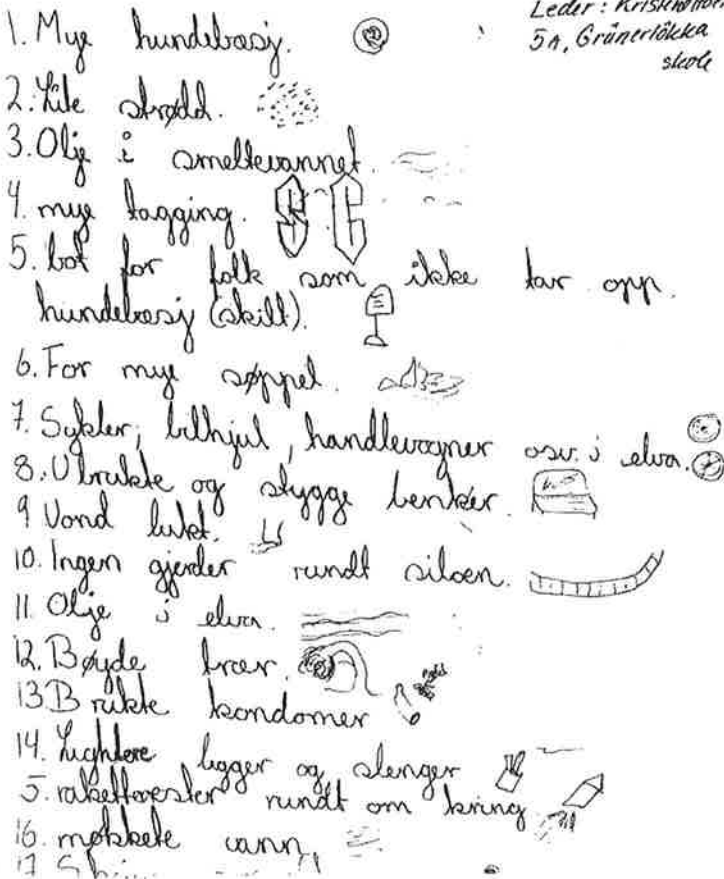 Leder:
5A, Grünerløkka
skole
1. Mye hundebæsj.
2. Lite strødd.
3. Olje i smeltevannet.
4. mye tagging. S C
5. bot for folk som ikke tar opp.
hundebæsj (skilt).
6. For mye søppel.
7. Sykler, bilhjul, handlevogner osv. i elva.
8. Ubrukte og stygge benker.
9 Vond lukt.
10. Ingen gjerder rundt siloen.
11. Olje i elva.
12. Bøyde trær.
13 Brukte kondomer
14. Lightere ligger og slenger
5. rakettrester rundt om kring
16. møkkete vann.
17